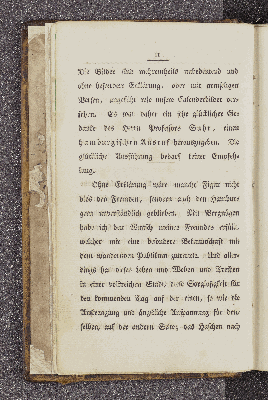 II
Die Bilder sind mehrentheils nebedeutend und
ohne besondere Erklärung, oder mit armseligen
Versen, ungefähr wie unsere Calenderbilder ver-
sehen. Es war daher ein sehr glücklicher Ge-
danke des Herrn Professors Suhr, einen
hamburgischen Ausruf herauszugeben. Die
glückliche Ausführung bedarf keiner Empfeh-
lung.
Ohne Erklärung wäre manche Figur nicht
blos den Fremden, sondern auch den Hambur-
gern unverständlich geblieben. Mit Vergnügen
habe ich den Wunsch meines Freundes erfüllt,
welcher mir eine besondere Bekanntschaft mit
dem wandernden Publikum zutraute. Und aller-
dings hat dieses Leben und Weben und Treiben
in einer volkreichen Stadt, diese Sorglosigkeit für
den kommenden Tag auf der einen, so wie die
Anstrengung und ängstliche Aufspannung für den-
selben auf der andern Seite, das Haschen nach